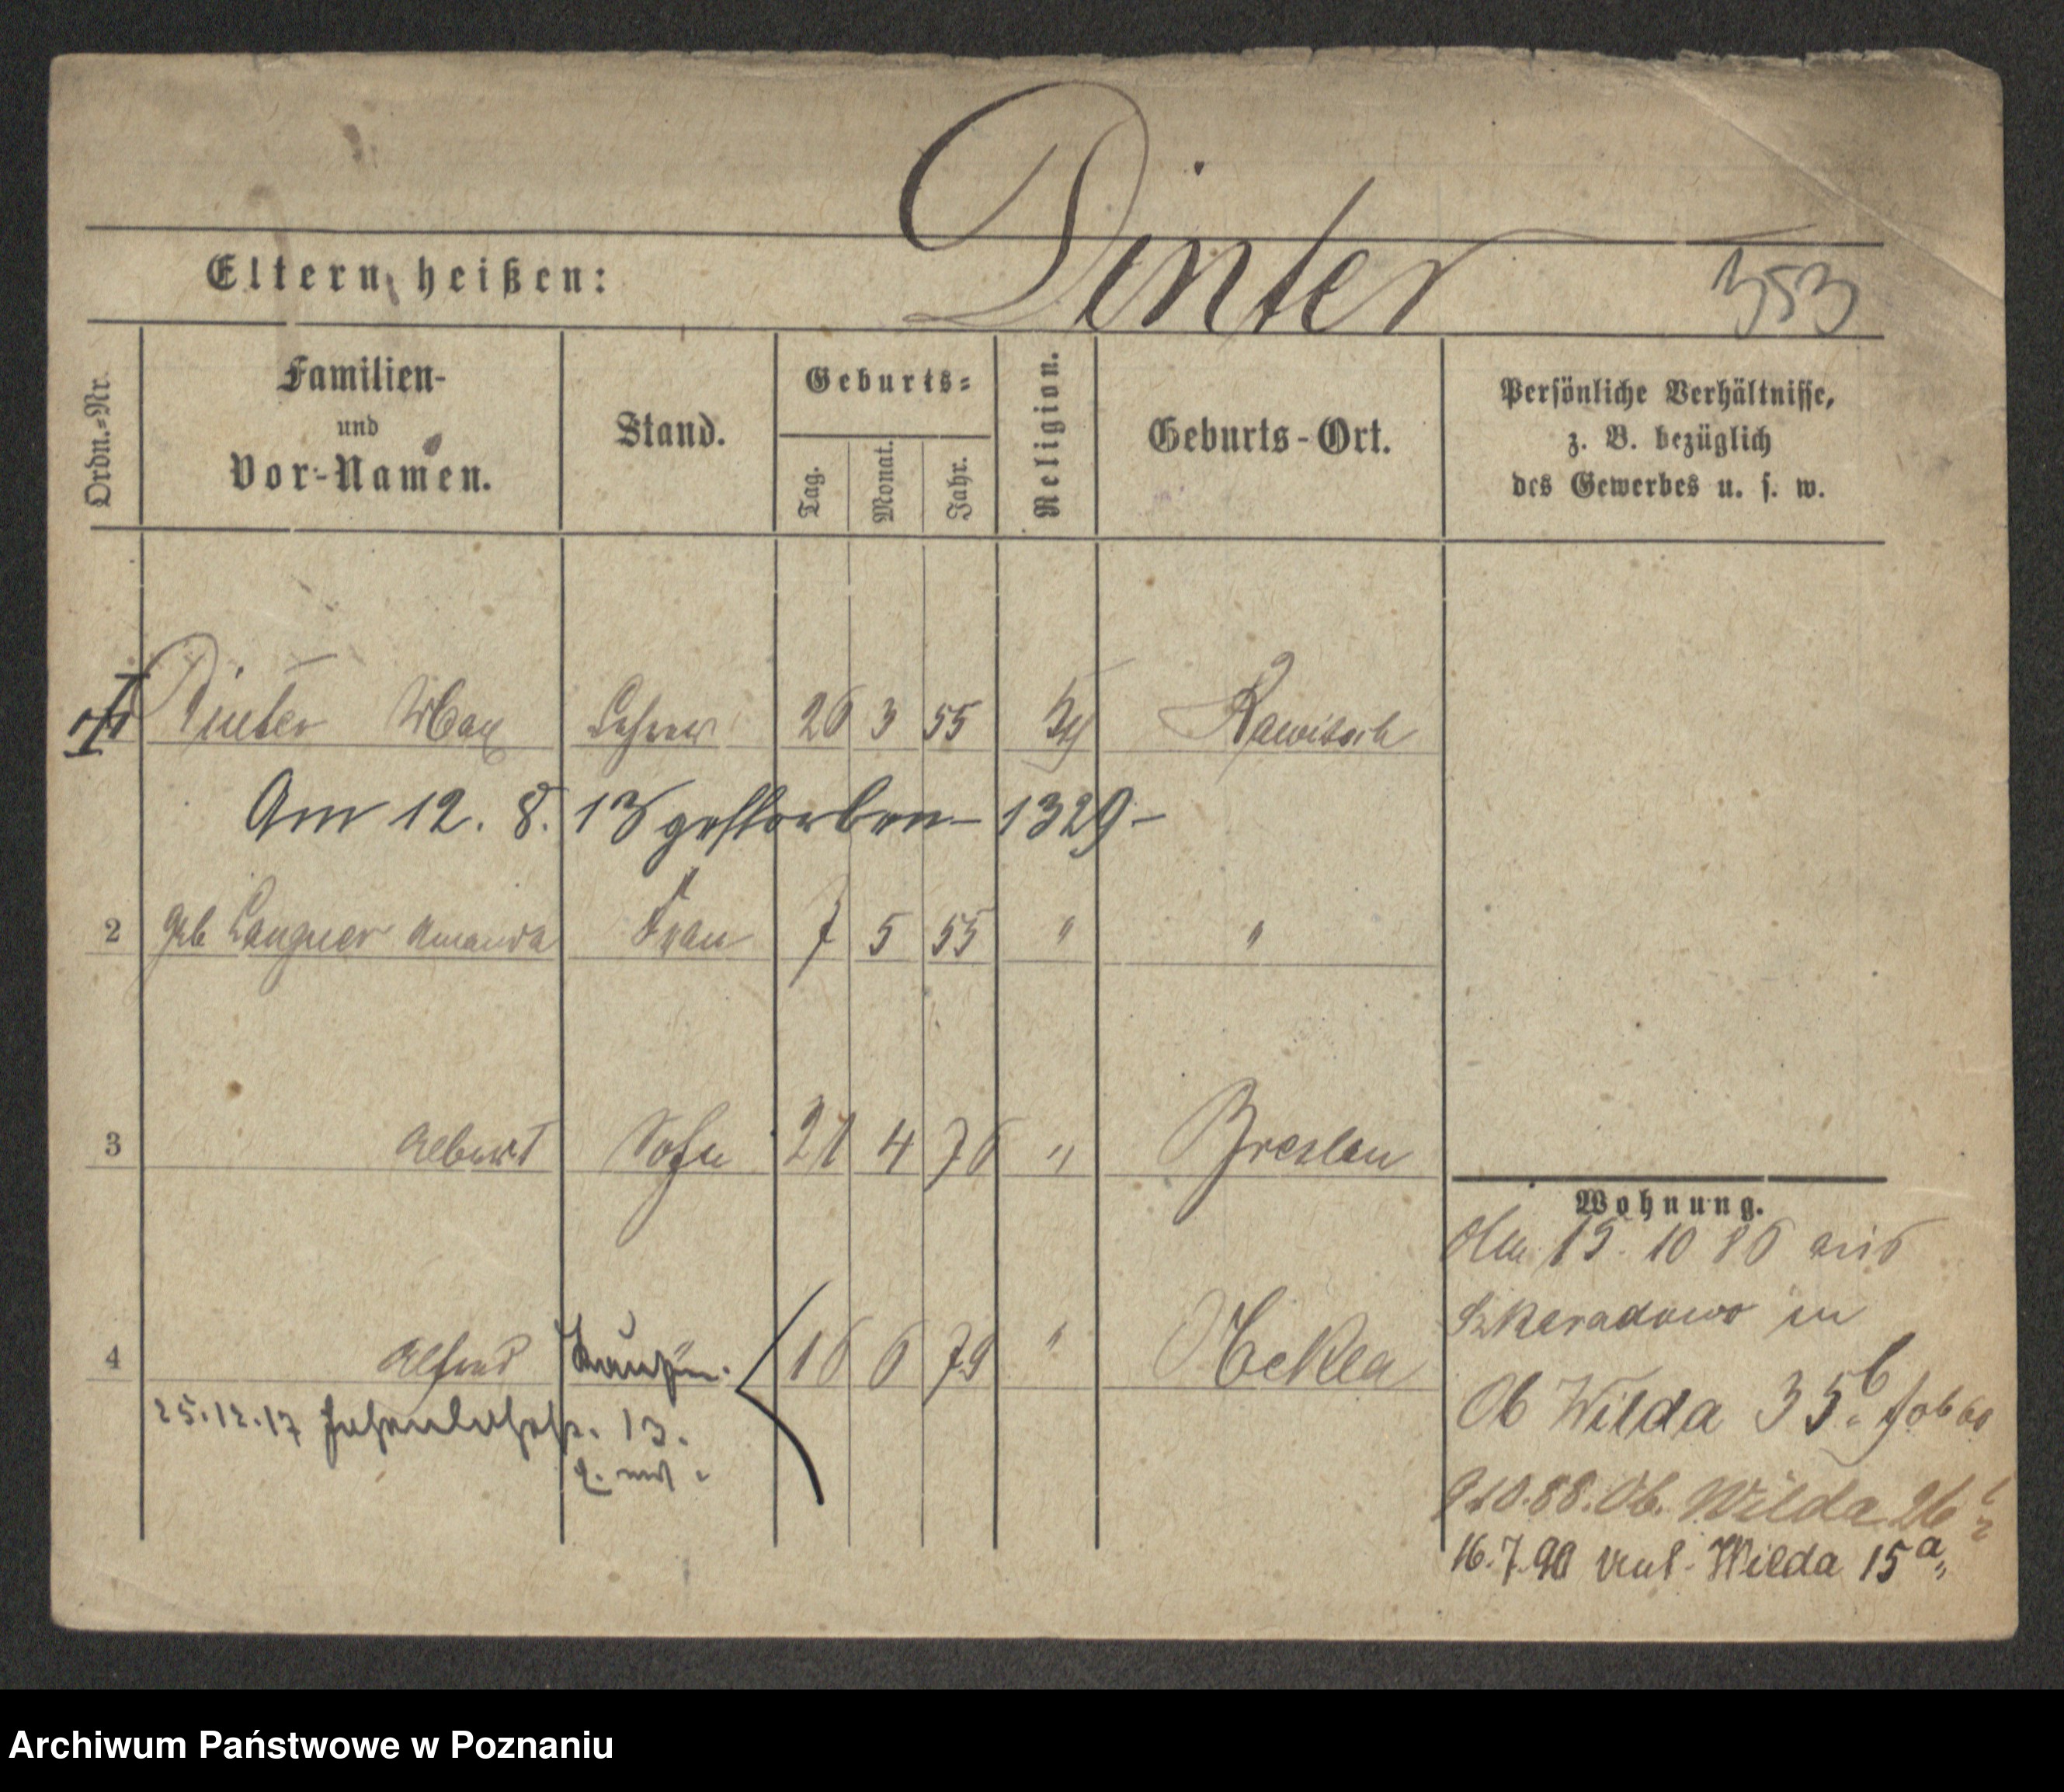 Dinter
Eltern heißen: 353
Ordn.-Nr. Familien- und Vor-Namen. Stand. Geburts- Tag. Monat. Jahr. Religion. Geburts-Ort. Persönliche Verhältnisse, z. B. bezüglich des Gewerbes u. s. w.
Dinter Max Lehrer 26 3 55 Rawitsch
Am 12. 8. 13 gestorben - 1329 -
2 geb Langner Amanda Frau 7 5 55 " "
3 Albert Sohn 21 4 76 " Breslau
4 Alfred Kaufm. 16 6 79 " Nekla
25.12.17 13.
Wohnung.
Am 15. 10 86 aus
Szkaradowo in
Ob Wilda 35b
88. Ob. Wilda 26
16.7.90 Unt. Wilda 15a
Archiwum Państwowe w Poznaniu